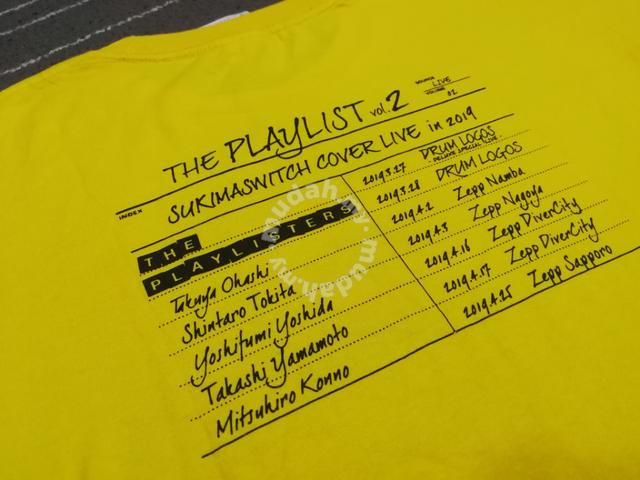 THE PLAYLIST vol.2
SOURCE LIVE
VOLUME 02
INDEX
SUKIMASWITCH COVER LIVE in 2019
THE
PLAYLISTERS
Takuya Ohashi
Shintaro Tokita
Yoshifumi Yoshida
Takashi Yamamoto
Mitsuhiro Konno
2019.3.27 DRUM LOGOS
DELUXE SPECIAL LIVE
2019.3.28 DRUM LOGOS
2019.4.2 Zepp Namba
2019.4.3 Zepp Nagoya
2019.4.16 Zepp DiverCity
2019.4.17 Zepp DiverCity
2019.4.25 Zepp Sapporo
mudah.my mudah.my